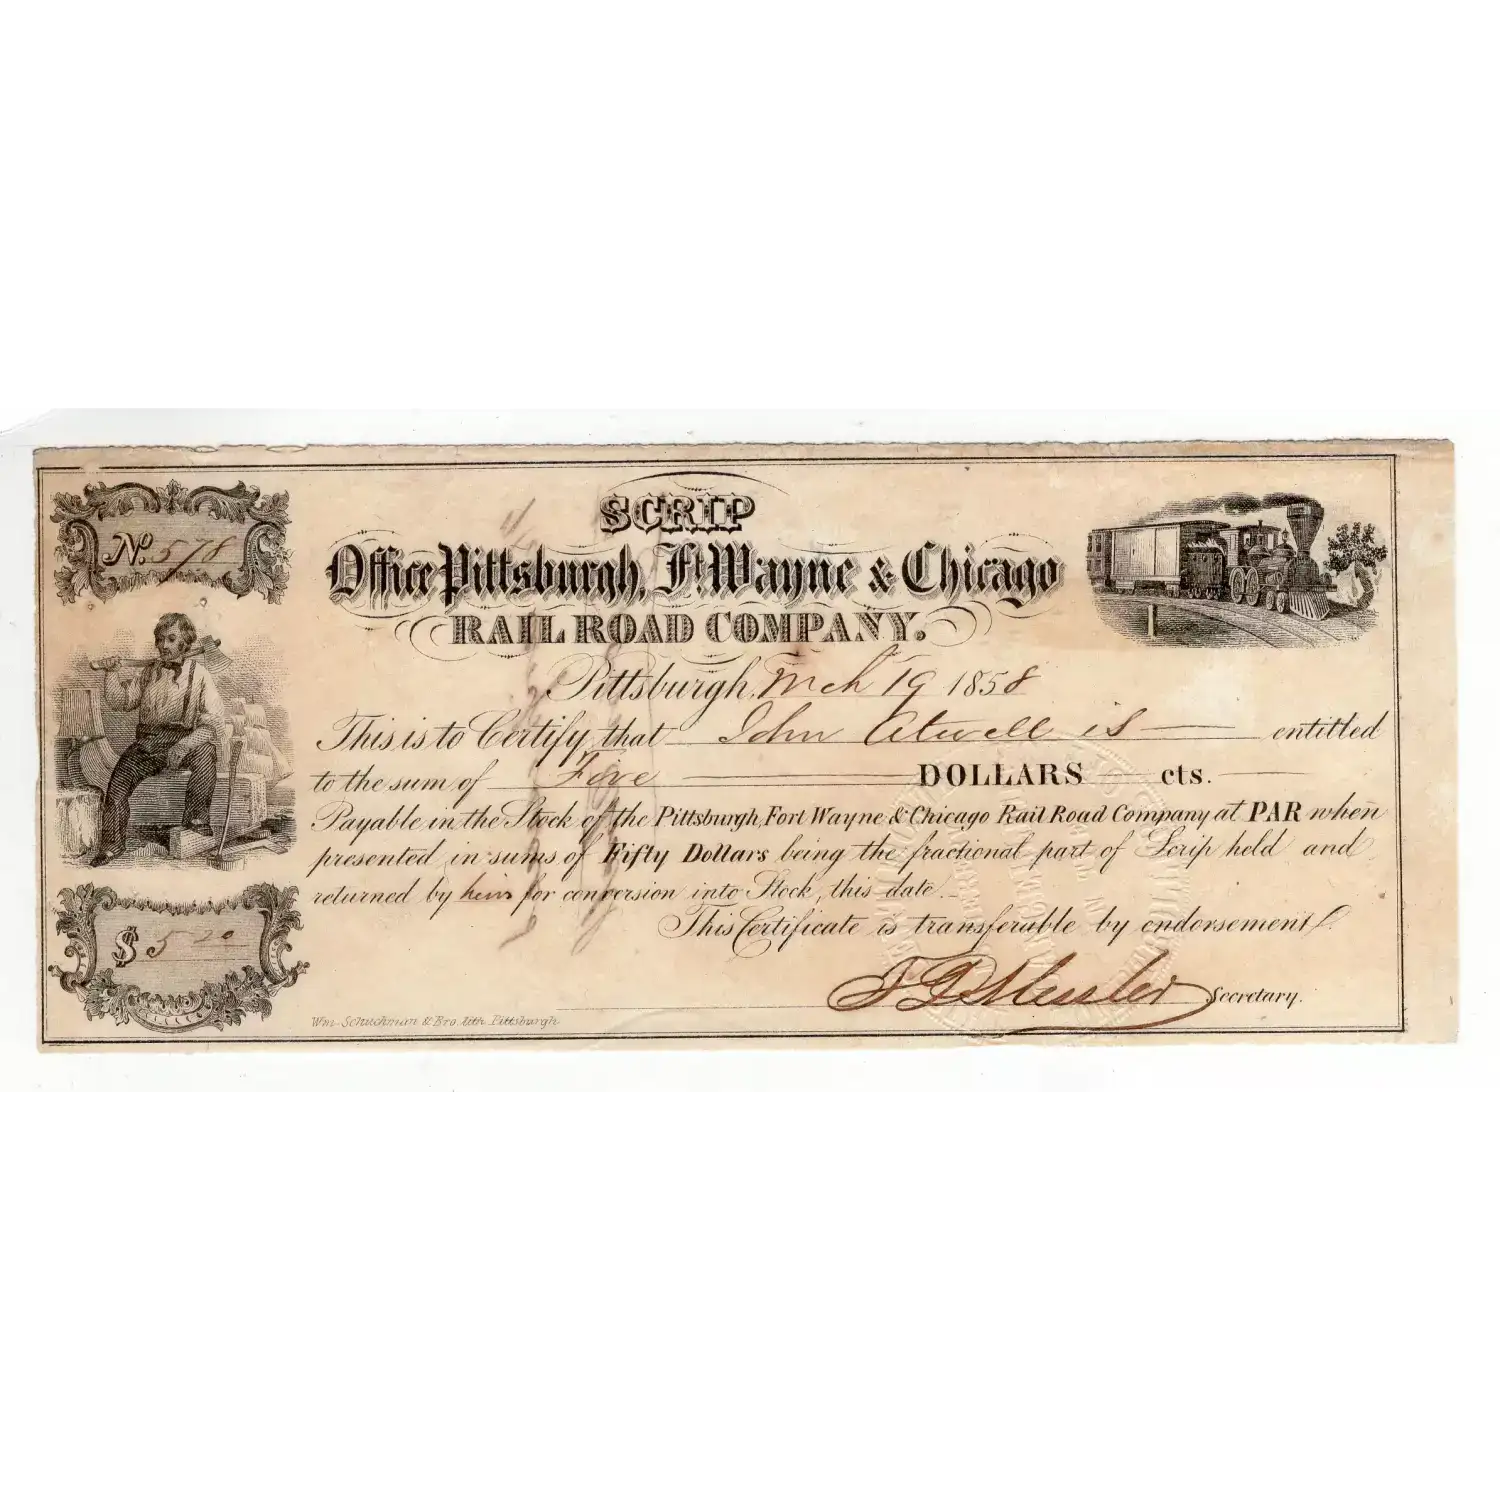 No. 578
SCRIP
Office Pittsburgh, Ft. Wayne & Chicago
RAIL ROAD COMPANY.
Pittsburgh, Mch 19 1858
This is to Certify that John Atwell is entitled
to the sum of Five DOLLARS cts.
Payable in the Stock of the Pittsburgh, Fort Wayne & Chicago Rail Road Company at PAR when
presented in sums of Fifty Dollars being the fractional part of Scrip held and
returned by him for conversion into Stock, this date.
This Certificate is transferable by endorsement.
$ 5
Secretary.
Wm. Schuchman & Bro. lith. Pittsburgh